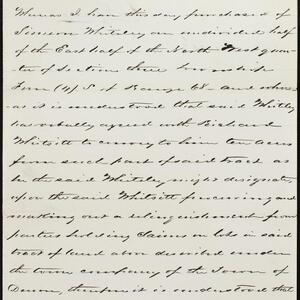 Whereas I have this day purchased of
Simeon Whiteley an undivided half
of the East half of the North West quar
ter of Section three Township
Four (4) S of Range 68 and where
as it is understood that said Whitley
has verbally agreed with Richard
Whitsitt to convey to him ten acres
from such part of said tract as
he the said Whiteley might designate,
upon the said Whitsitt procuring and
making out a relinquishment from
parties holding Claims on lots in said
tract of land above described under
the town company of the Town of
it is understood that